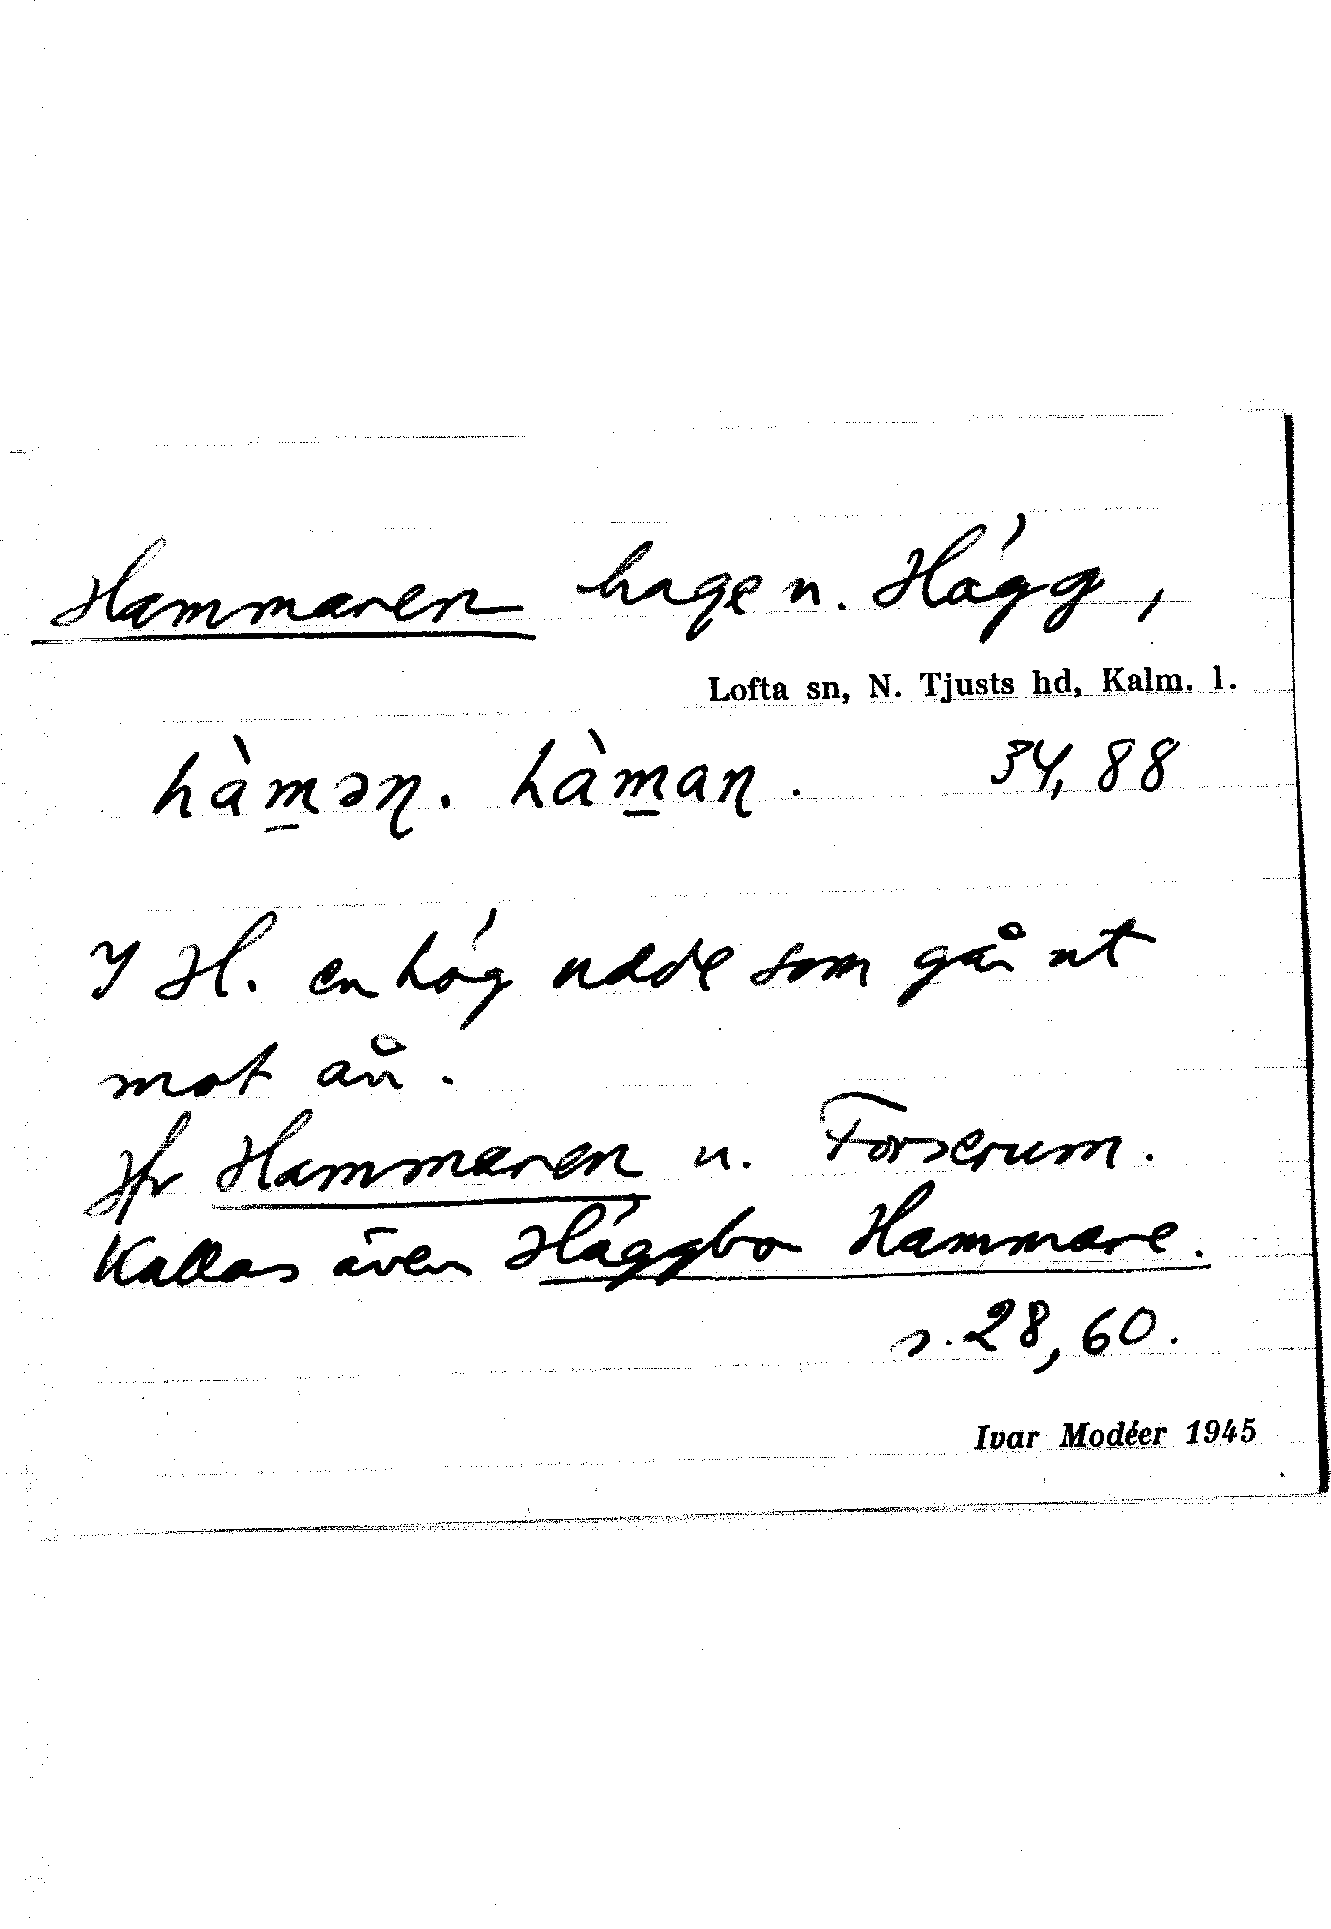 Hammaren hage u. Högg,
Lofta sn, N. Tjusts hd, Kalm. l.
hàm̲əɳ. hàm̲aɳ. 34, 88
I H. en hög udde som går ut
mot ån.
Jfr Hammaren u. Forserum.
Kallas även Höggbo Hammare.
s. 28, 60.
Ivar Modéer 1945